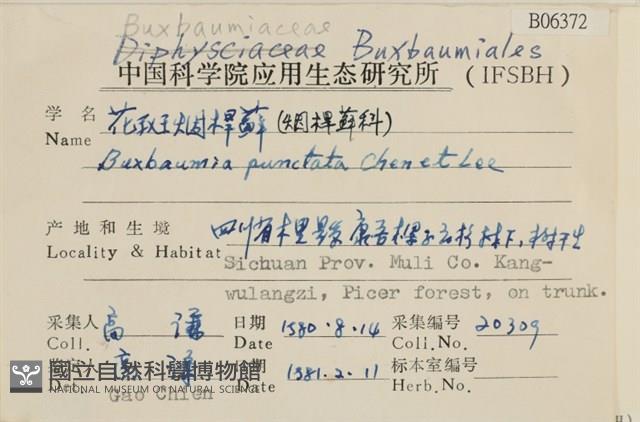 B06372
Buxbaumiaceae
Diphysciaceae Buxbaumiales
中国科学院应用生态研究所 (IFSBH)
学名 花斑烟桿蘚 (烟桿蘚科)
Name
Buxbaumia punctata Chen et Lee
产地和生境 四川省木里縣康吾樑子云杉林下,樹干生
Locality & Habitat
Sichuan Prov. Muli Co. Kang-
wulangzi, Picer forest, on trunk.
采集人 高谦 日期 1980.8.14 采集编号 20309
Coll. Date Coll.No.
高谦 日期 1981.2.11 标本室编号
Date Herb.No.
Gao Chien
國立自然科學博物館
NATIONAL MUSEUM OF NATURAL SCIENCE